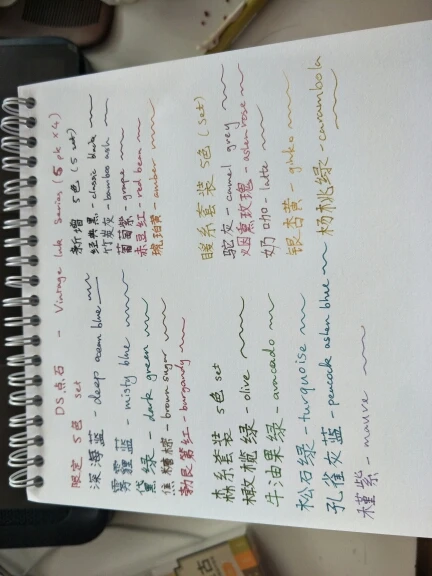 DS点石 - Vintage Ink Series (5 pk x 4)
限定 5色 set
深海蓝 - deep ocean blue
雾霾蓝 - misty blue
黛绿 - dark green
焦糖棕 - brown sugar
勃艮第红 - burgundy
新增 5色 (5 set)
经典黑 - classic black
竹炭灰 - bamboo ash
葡萄紫 - grape
赤豆红 - red bean
琥珀黄 - amber
森系套装 5色 set
橄榄绿 - olive
牛油果绿 - avocado
松石绿 - turquoise
孔雀灰蓝 - peacock ashen blue
槿紫 - mauve
暖系套装 5色 (set)
驼灰 - camel grey
烟熏玫瑰 - ashen rose
奶咖 - latte
银杏黄 - ginko
杨桃绿 - carambola